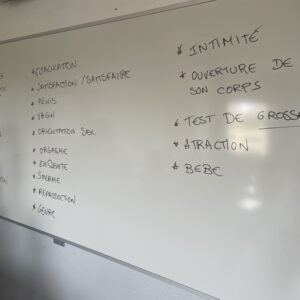 * EJACULATION
* SATISFACTION / SATISFAIRE
* PÉNIS
* VAGIN
* ORIENTATION SEX.
* ORGASME
* SPERME
* REPRODUCTION
* GENRE
* INTIMITÉ
* OUVERTURE DE
SON CORPS
* TEST DE GROSS
* ATRACTION
* BEBE